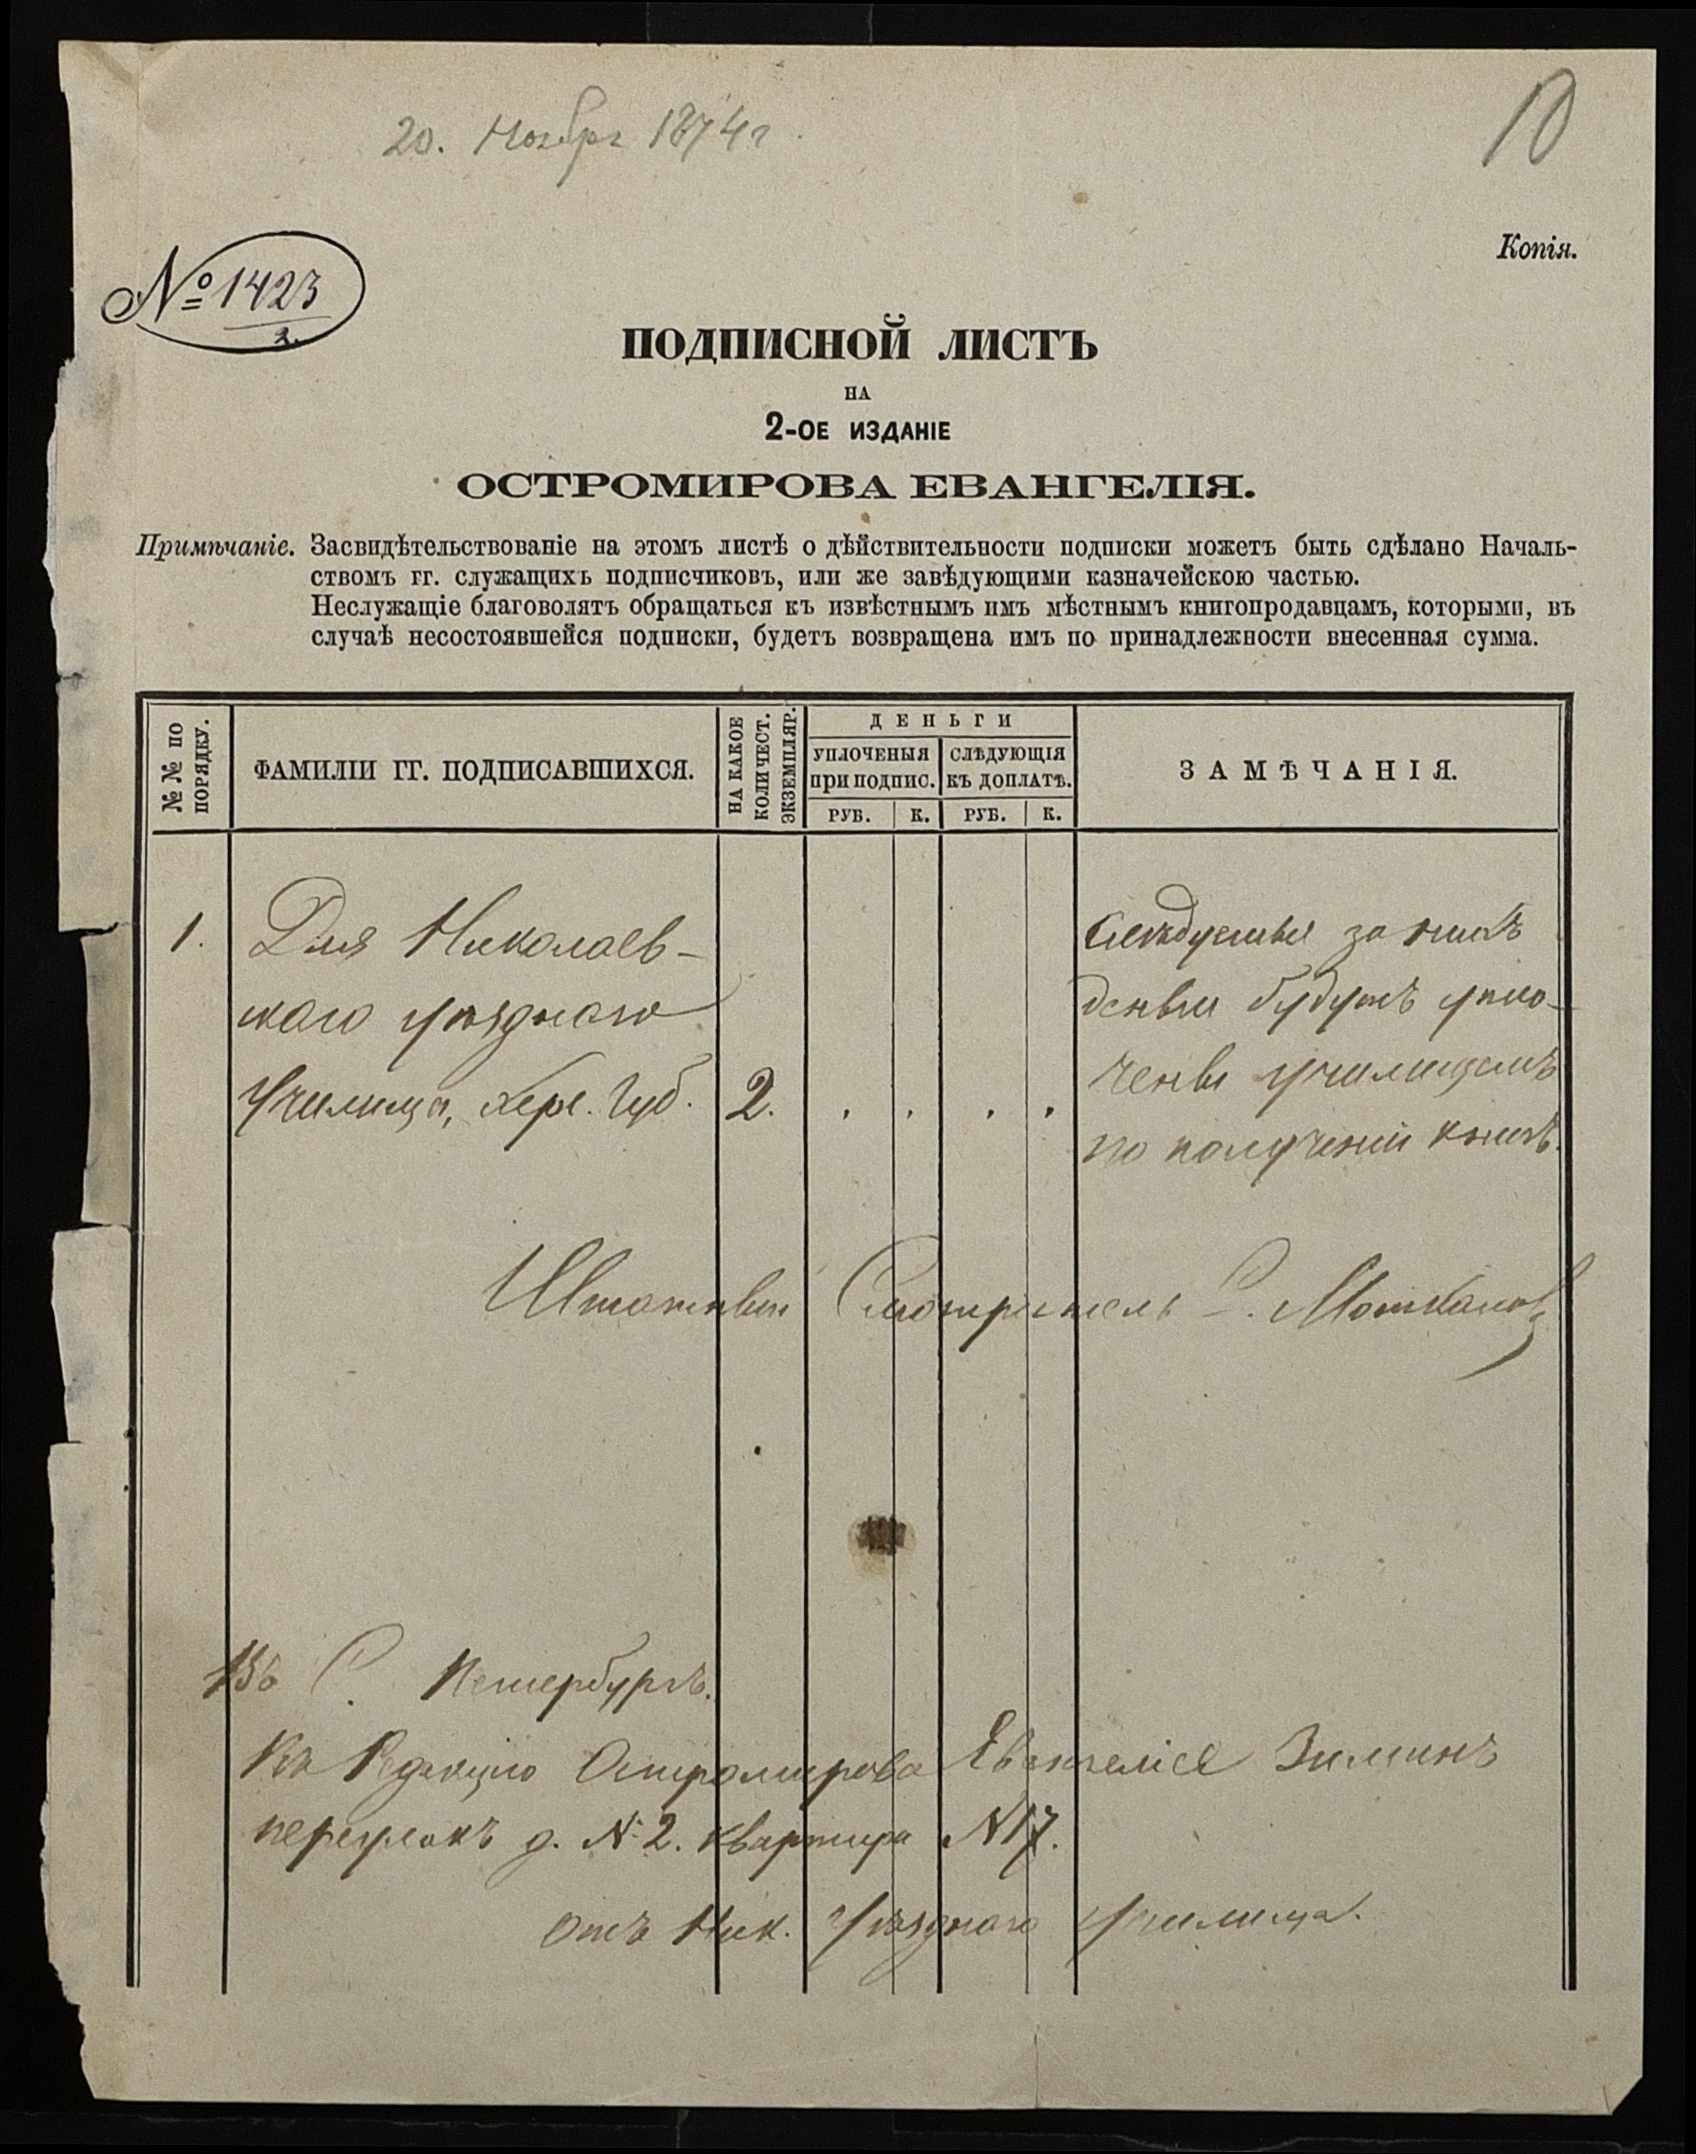 20. Ноября 1874 г.
10
№ 1423
2.
Копія.
ПОДПИСНОЙ ЛИСТЪ
НА
2-ОЕ ИЗДАНІЕ
ОСТРОМИРОВА ЕВАНГЕЛІЯ.
Примѣчаніе. Засвидѣтельствованіе на этомъ листѣ о дѣйствительности подписки можетъ быть сдѣлано Началь-
ствомъ гг. служащихъ подписчиковъ, или же завѣдующими казначейскою частью.
Неслужащіе благоволятъ обращаться къ извѣстнымъ имъ мѣстнымъ книгопродавцамъ, которыми, въ
случаѣ несостоявшейся подписки, будетъ возвращена имъ по принадлежности внесенная сумма.
№ № ПО ПОРЯДКУ.
ФАМИЛІИ ГГ. ПОДПИСАВШИХСЯ.
НА КАКОЕ КОЛИЧЕСТ. ЭКЗЕМПЛЯР.
ДЕНЬГИ
УПЛОЧЕНЫЯ ПРИ ПОДПИС.
СЛѢДУЮЩІЯ КЪ ДОПЛАТѢ.
РУБ. К. РУБ. К.
ЗАМѢЧАНІЯ.
1. Для Николаев-
скаго уѣзднаго
Училища, Херс. Губ. 2. . . . .
Слѣдуемыя за нихъ
деньги будутъ упло-
чены училищемъ
по полученіи книгъ.
Штатный Смотритель С.
Въ С. Петербургъ.
Въ Редакцію Остромирова Евангелія Зиминъ
переулокъ д. № 2. квартира № 17.
Отъ Ник. Уѣзднаго училища.